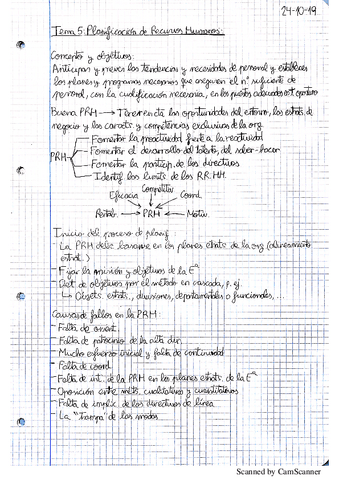 24-10-19
Tema 5: Planificación de Recursos Humanos
Concepto y objetivos:
Anticipar y prever las tendencias y necesidades de personal y establecer
los planes y programas necesarios que aseguren el nº suficiente de
personal, con la cualificación necesaria, en los puestos adecuados
Buena PRH → Tener en cta las oportunidades del entorno, las estrat. de
negocio y las caract. y competencias exclusivas de la org.
PRH
Fomentar la proactividad frente a la reactividad
Fomentar el desarrollo del talento, del saber-hacer
Fomentar la particip. de los directivos
Identif. los límites de los RR.HH.
Competitiv.
Eficacia
Coord.
Rentab. → PRH ← Motiv.
Inicio del proceso de planif.
- La PRH debe basarse en los planes estrat. de la org (alineamiento
estrat.)
- Fijar la misión y objetivos de la Eª
- Det. de objetivos por el método en cascada, p. ej.
↳ Objets. estrats., divisiones, departamentales o funcionales, ...
Causas de fallos en la PRH:
- Falta de
- Falta de patrocinio de la alta dir.
- Mucho esfuerzo inicial y falta de continuidad
- Falta de coord
- Falta de int. de la PRH en los planes estrats. de la Eª
- Oposición entre méts. cualitativos y cuantitativos
- Falta de implic. de los directivos de línea
- La "Trampa" de las modas
Scanned by CamScanner